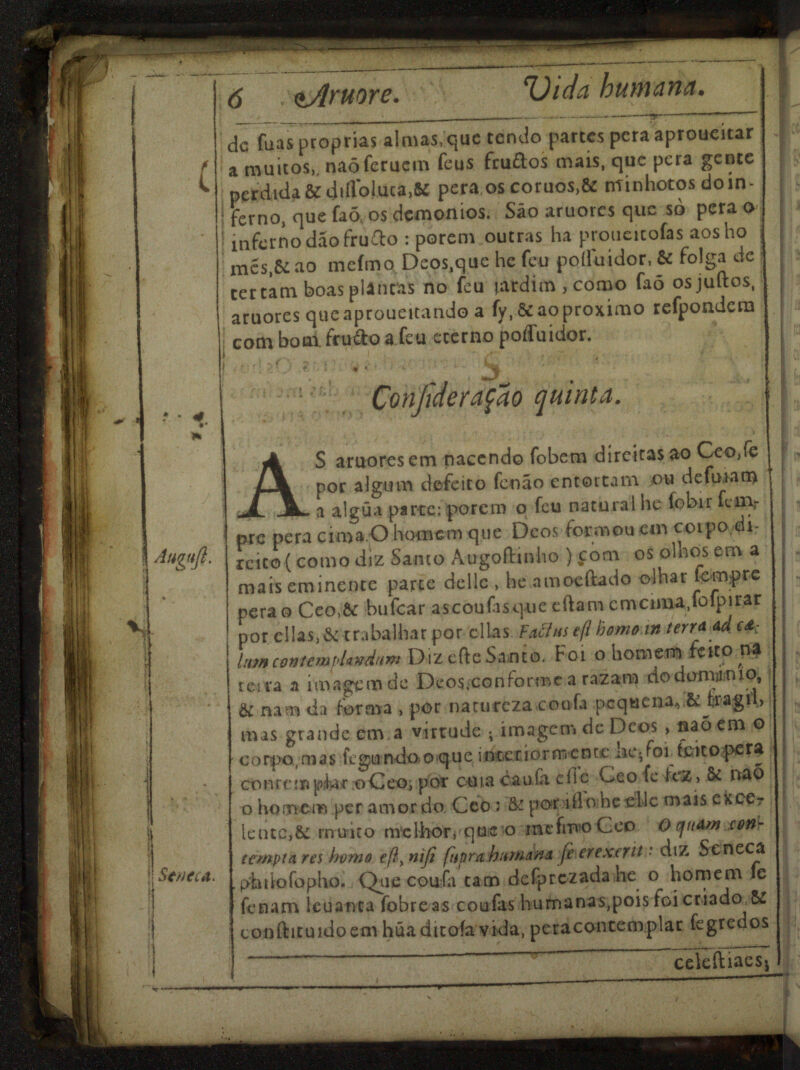 6 Aruore. Vida humana.
de ſuas proprias almas, que tendo partes pera aproueitar
a muitos, naõ ſeruem ſeus fructos mais, que pera gente
perdida & diſſoluta, & pera os coruos, & minhotos do in-
ferno, que ſaõ, os demonios. São aruores que sò pera o
inferno dão fructo : porem outras ha proueitoſas aos ho
mẽs, & ao meſmo Deos, que he ſeu poſſuidor, & folga de
ter tam boas plantas no ſeu jardim, como ſaõ os juſtos,
aruores que aproueitando a ſy, & ao proximo reſpondem
com bom fructo a ſeu eterno poſſuidor.
Conſideração quinta.
AS aruores em nacendo ſobem direitas ao Ceo, ſe
por algum defeito ſenão entortam ou deſuiam
a algũa parte: porem o ſeu natural he ſobir ſem-
pre pera cima. O homem que Deos formou em corpo di-
Auguſt.
reito ( como diz Santo Augoſtinho ) com os olhos em a
mais eminente parte delle, he amoeſtado olhar ſempre
pera o Ceo, & buſcar as couſas que eſtam em cima, ſoſpirar
por ellas, & trabalhar por ellas. Factus eſt homo in terra ad cæ-
lum contemplandum Diz eſte Santo. Foi o homem feito na
terra a imagem de Deos, conforme a razam do dominio,
& nam da forma, por natureza couſa pequena, & fragil,
mas grande em a virtude ; imagem de Deos, naõ em o
corpo, mas ſegundo o que interiormente he; foi feito pera
contemplar o Ceo, por cuia cauſa eſſe Ceo ſe fez, & naõ
o homem per amor do Ceo : & por iſſo he elle mais exce-
lente, & muito melhor, que o meſmo Ceo O quàm con-
tempta res homo eſt, niſi ſupra humana ſe erexerit : diz Seneca
Seneca.
philoſopho. Que couſa tam deſprezada he o homem ſe
ſenam leuanta ſobre as couſas humanas, pois foi criado &
conſtituido em hũa ditoſa vida, pera contemplar ſegredos
celeſtiaes;